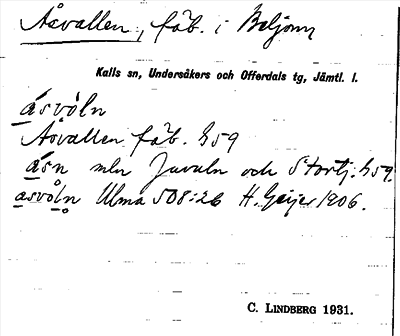 Åsvallen, fäb. i Beljom
Kalls sn, Undersåkers och Offerdals tg, Jämtl. l.
åsvòln
Åsvallen fäb. h59
åsn mln Juvuln och Stortj. h59.
åsvoln Ulma 508:26 H. Geijer 1906.
C. LINDBERG 1931.